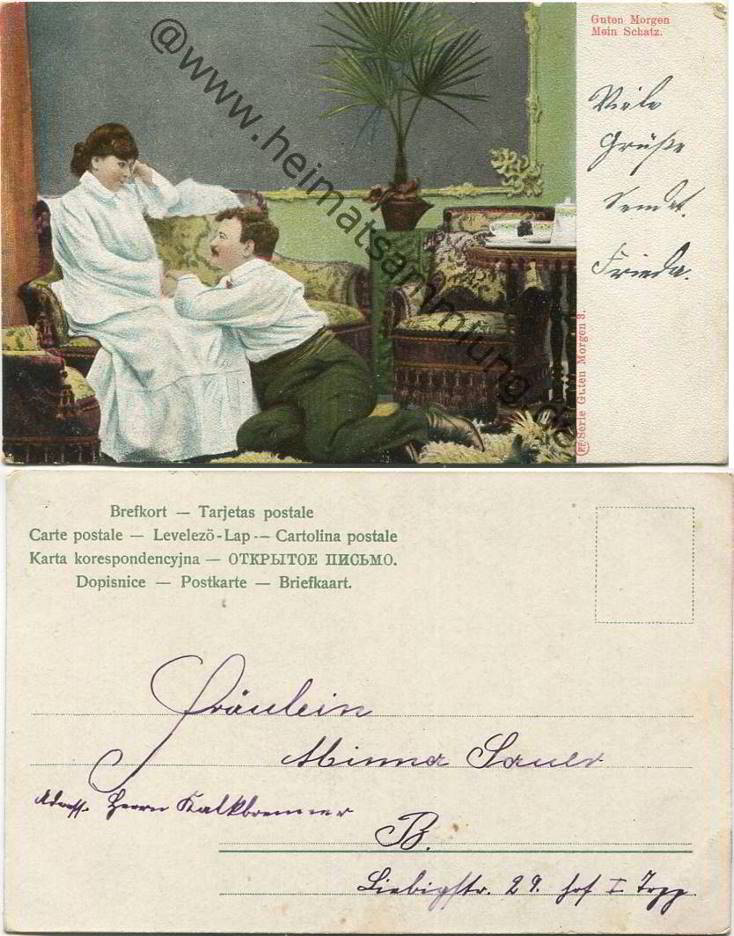 Guten Morgen
Mein Schatz.
Viele
Grüße
sendet.
Frieda.
@www.heimatsammlung.de
Serie Guten Morgen 3.
Brefkort — Tarjetas postale
Carte postale — Levelező-Lap — Cartolina postale
Karta korespondencyjna — ОТКРЫТОЕ ПИСЬМО.
Dopisnice — Postkarte — Briefkaart.
Fräulein
Minna Sauer
Adress. Herrn Kalkbrenner
B.
Liebigstr. 29. Hof I Trpp.